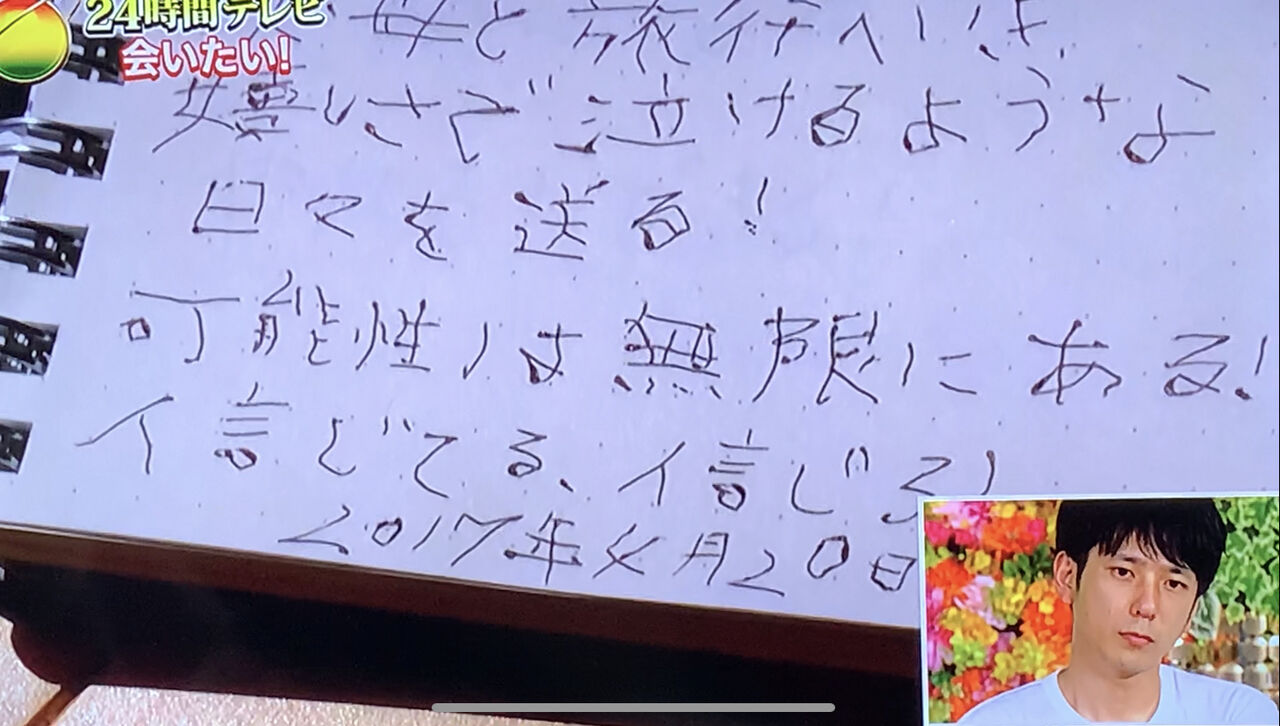 24時間テレビ
会いたい!
母と旅行へいき
嬉しさで泣けるような
日々を送る!
可能性は無限にある!
信じてる、信じろ!
2017年4月20日